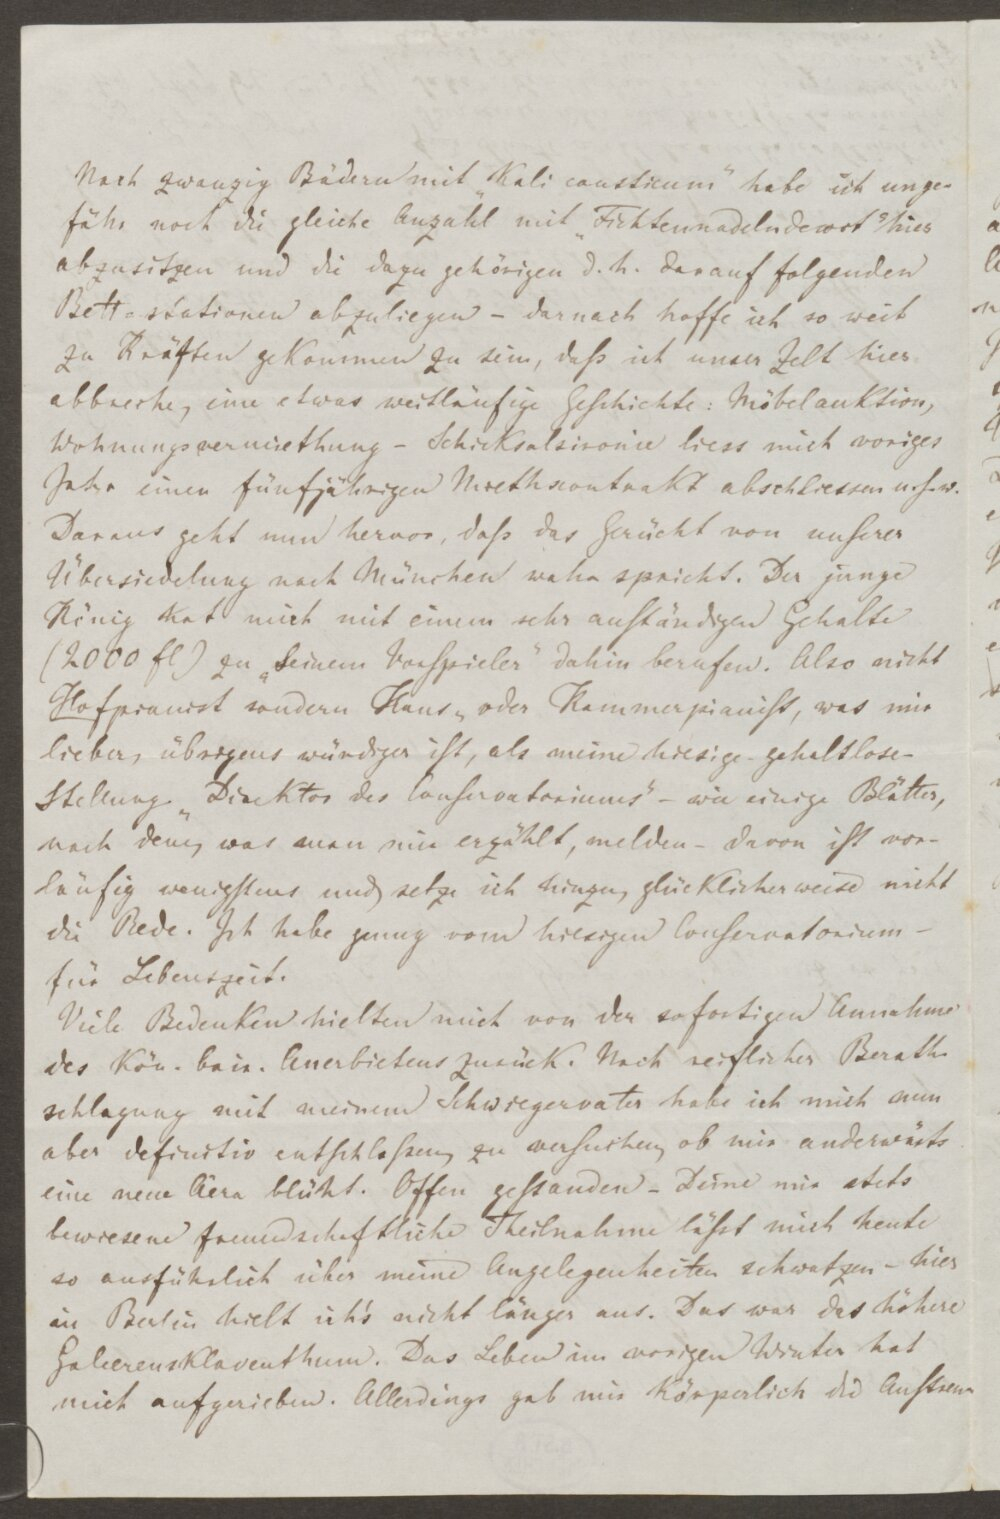 Nach zwanzig Bädern mit „Kali causticum“ habe ich unge-
fähr noch die gleiche Anzahl mit „Fichtennadeldecoct“ hier
abzusitzen und die dazu gehörigen d. h. darauf folgenden
Bett-stationen abzuliegen – darnach hoffe ich so weit
zu Kräften gekommen zu sein, daß ich unser Zelt hier
abbreche, eine etwas weitläufige Geschichte: Möbelauktion,
Wohnungsvermiethung – Schicksalsironie liess mich voriges
Jahr einen fünfjährigen Miethscontrakt abschliessen u.s.w.
Daraus geht nun hervor, daß das Gerücht von unserer
Übersiedelung nach München wahr spricht. Der junge
König hat mich mit einem sehr anständigen Gehalte
(2000 fl) zu „seinem Vorspieler“ dahin berufen. Also nicht
Hofpianist sondern Haus- oder Kammerpianist, was mir
lieber, übrigens würdiger ist, als meine hiesige gehaltlose
Stellung. „Direktor des Conservatoriums“ – wie einige Blätter,
nach dem, was man mir erzählt, melden – davon ist vor-
läufig wenigstens und, setze ich hinzu, glücklicherweise nicht
die Rede. Ich habe genug vom hiesigen Conservatorium –
für Lebenszeit.
Viele Bedenken hielten mich von der sofortigen Annahme
des Kön. bair. Anerbietens zurück. Nach reiflicher Berath-
schlagung mit meinem Schwiegervater habe ich mich nun
aber definitiv entschlossen, zu versuchen, ob mir anderwärts
eine neue Aera blüht. Offen gestanden – Deine mir stets
bewiesene freundschaftliche Theilnahme läßt mich heute
so ausführlich über meine Angelegenheiten schwatzen – hier
in Berlin hielt ich's nicht länger aus. Das war das höhere
Galeerensklaventhum. Das Leben im vorigen Winter hat
mich aufgerieben. Allerdings gab mir körperlich die Anstren-